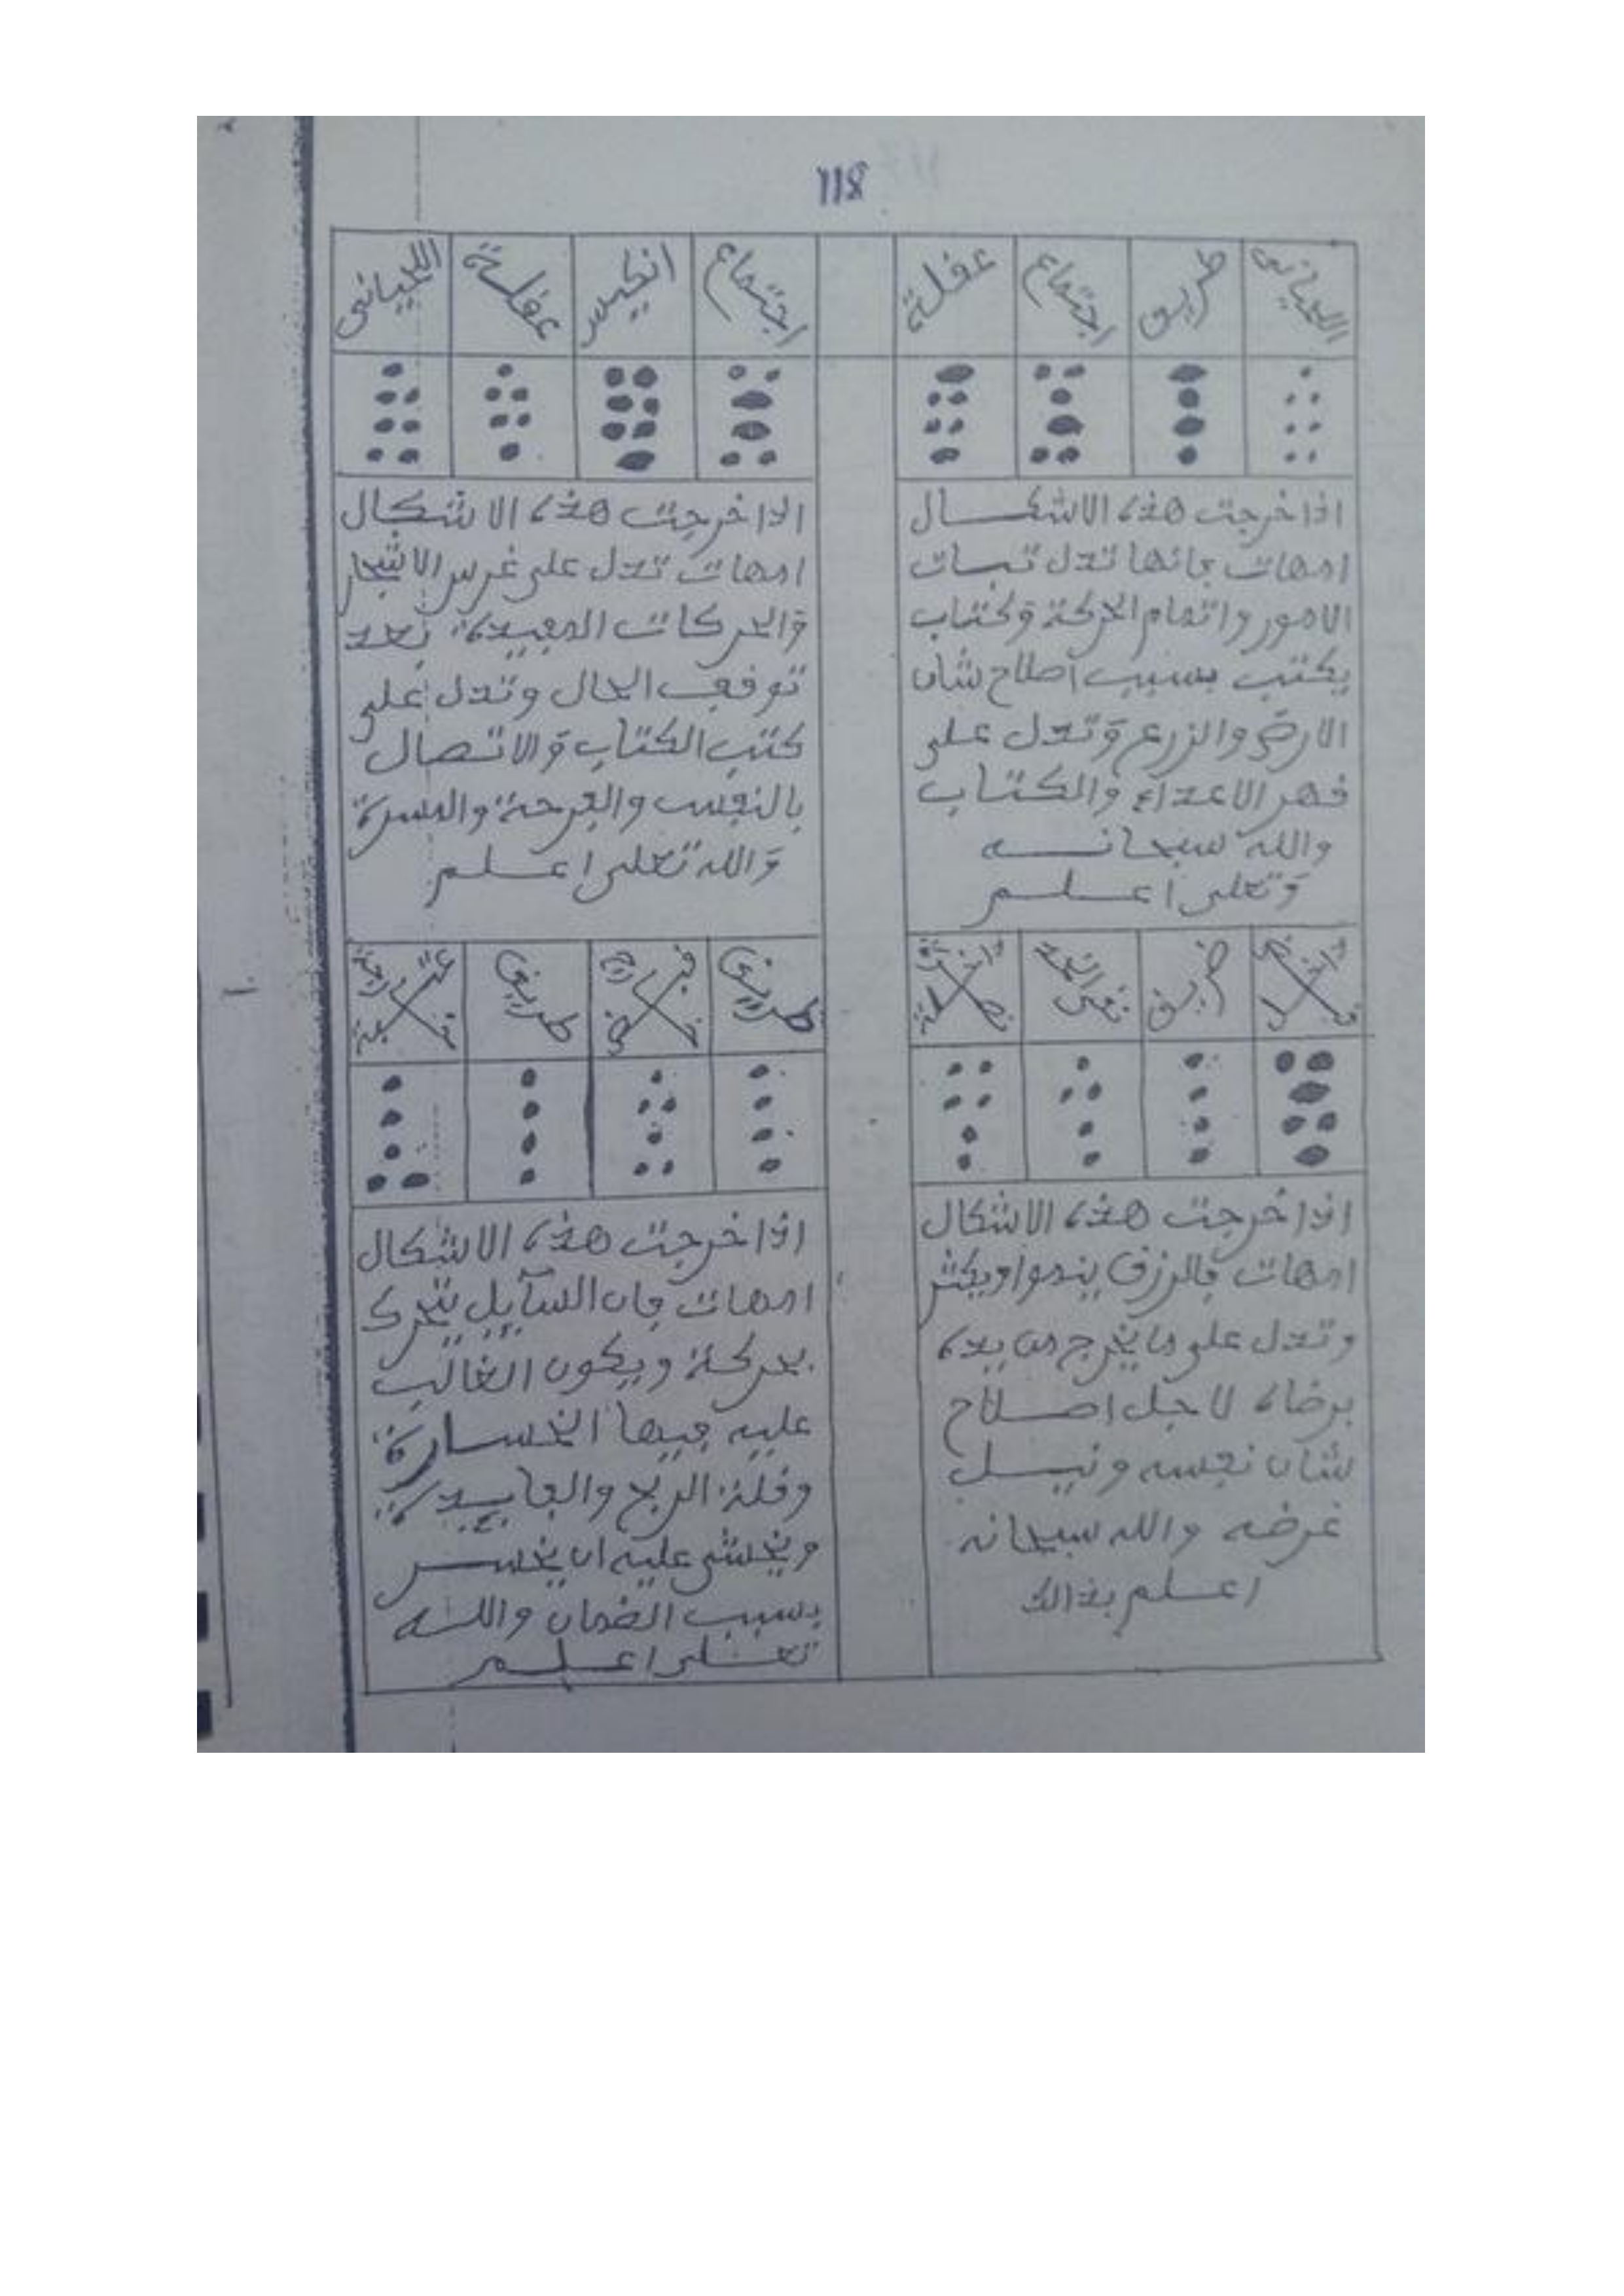 118
اللحياني طريق اجتماع عقلة
اذا خرجت هذه الاشكال
امهات بانها تدل تبات
الامور واتمام الحركة وكتاب
يكتب بسبب اصلاح شان
الارض والزرع وتدل على
فهر الاعداء والكتاب
والله سبحانه
وتعلى اعلم
اجتماع انكيس عقلة اللحياني
الاا خرجت هذه الاشكال
امهات تدل على غرس الاشجار
والحركات المعيدة بعد
توفف الحال وتدل على
كتب الكتاب والاتصال
بالنفس والفرحة والمسرة
والله تعلى اعلم
طريق نفي الخد
اذا خرجت هذه الاشكال
امهات فالرزق ينموا ويكثر
وتدل على ما يخرج من يده
برضاه لاجل اصلاح
شان نفسه ونيل
غرضه والله سبحانه
اعلم بذالك
طريق طريق
اذا خرجت هذه الاشكال
امهات فان السآيل يتحرك
بحركة ويكون الغالب
عليه فيها الخسارة
وفلة الربح والفايدة
ويخشى عليه ان يخسر
بسبب الضمان والله
تعلى اعلم